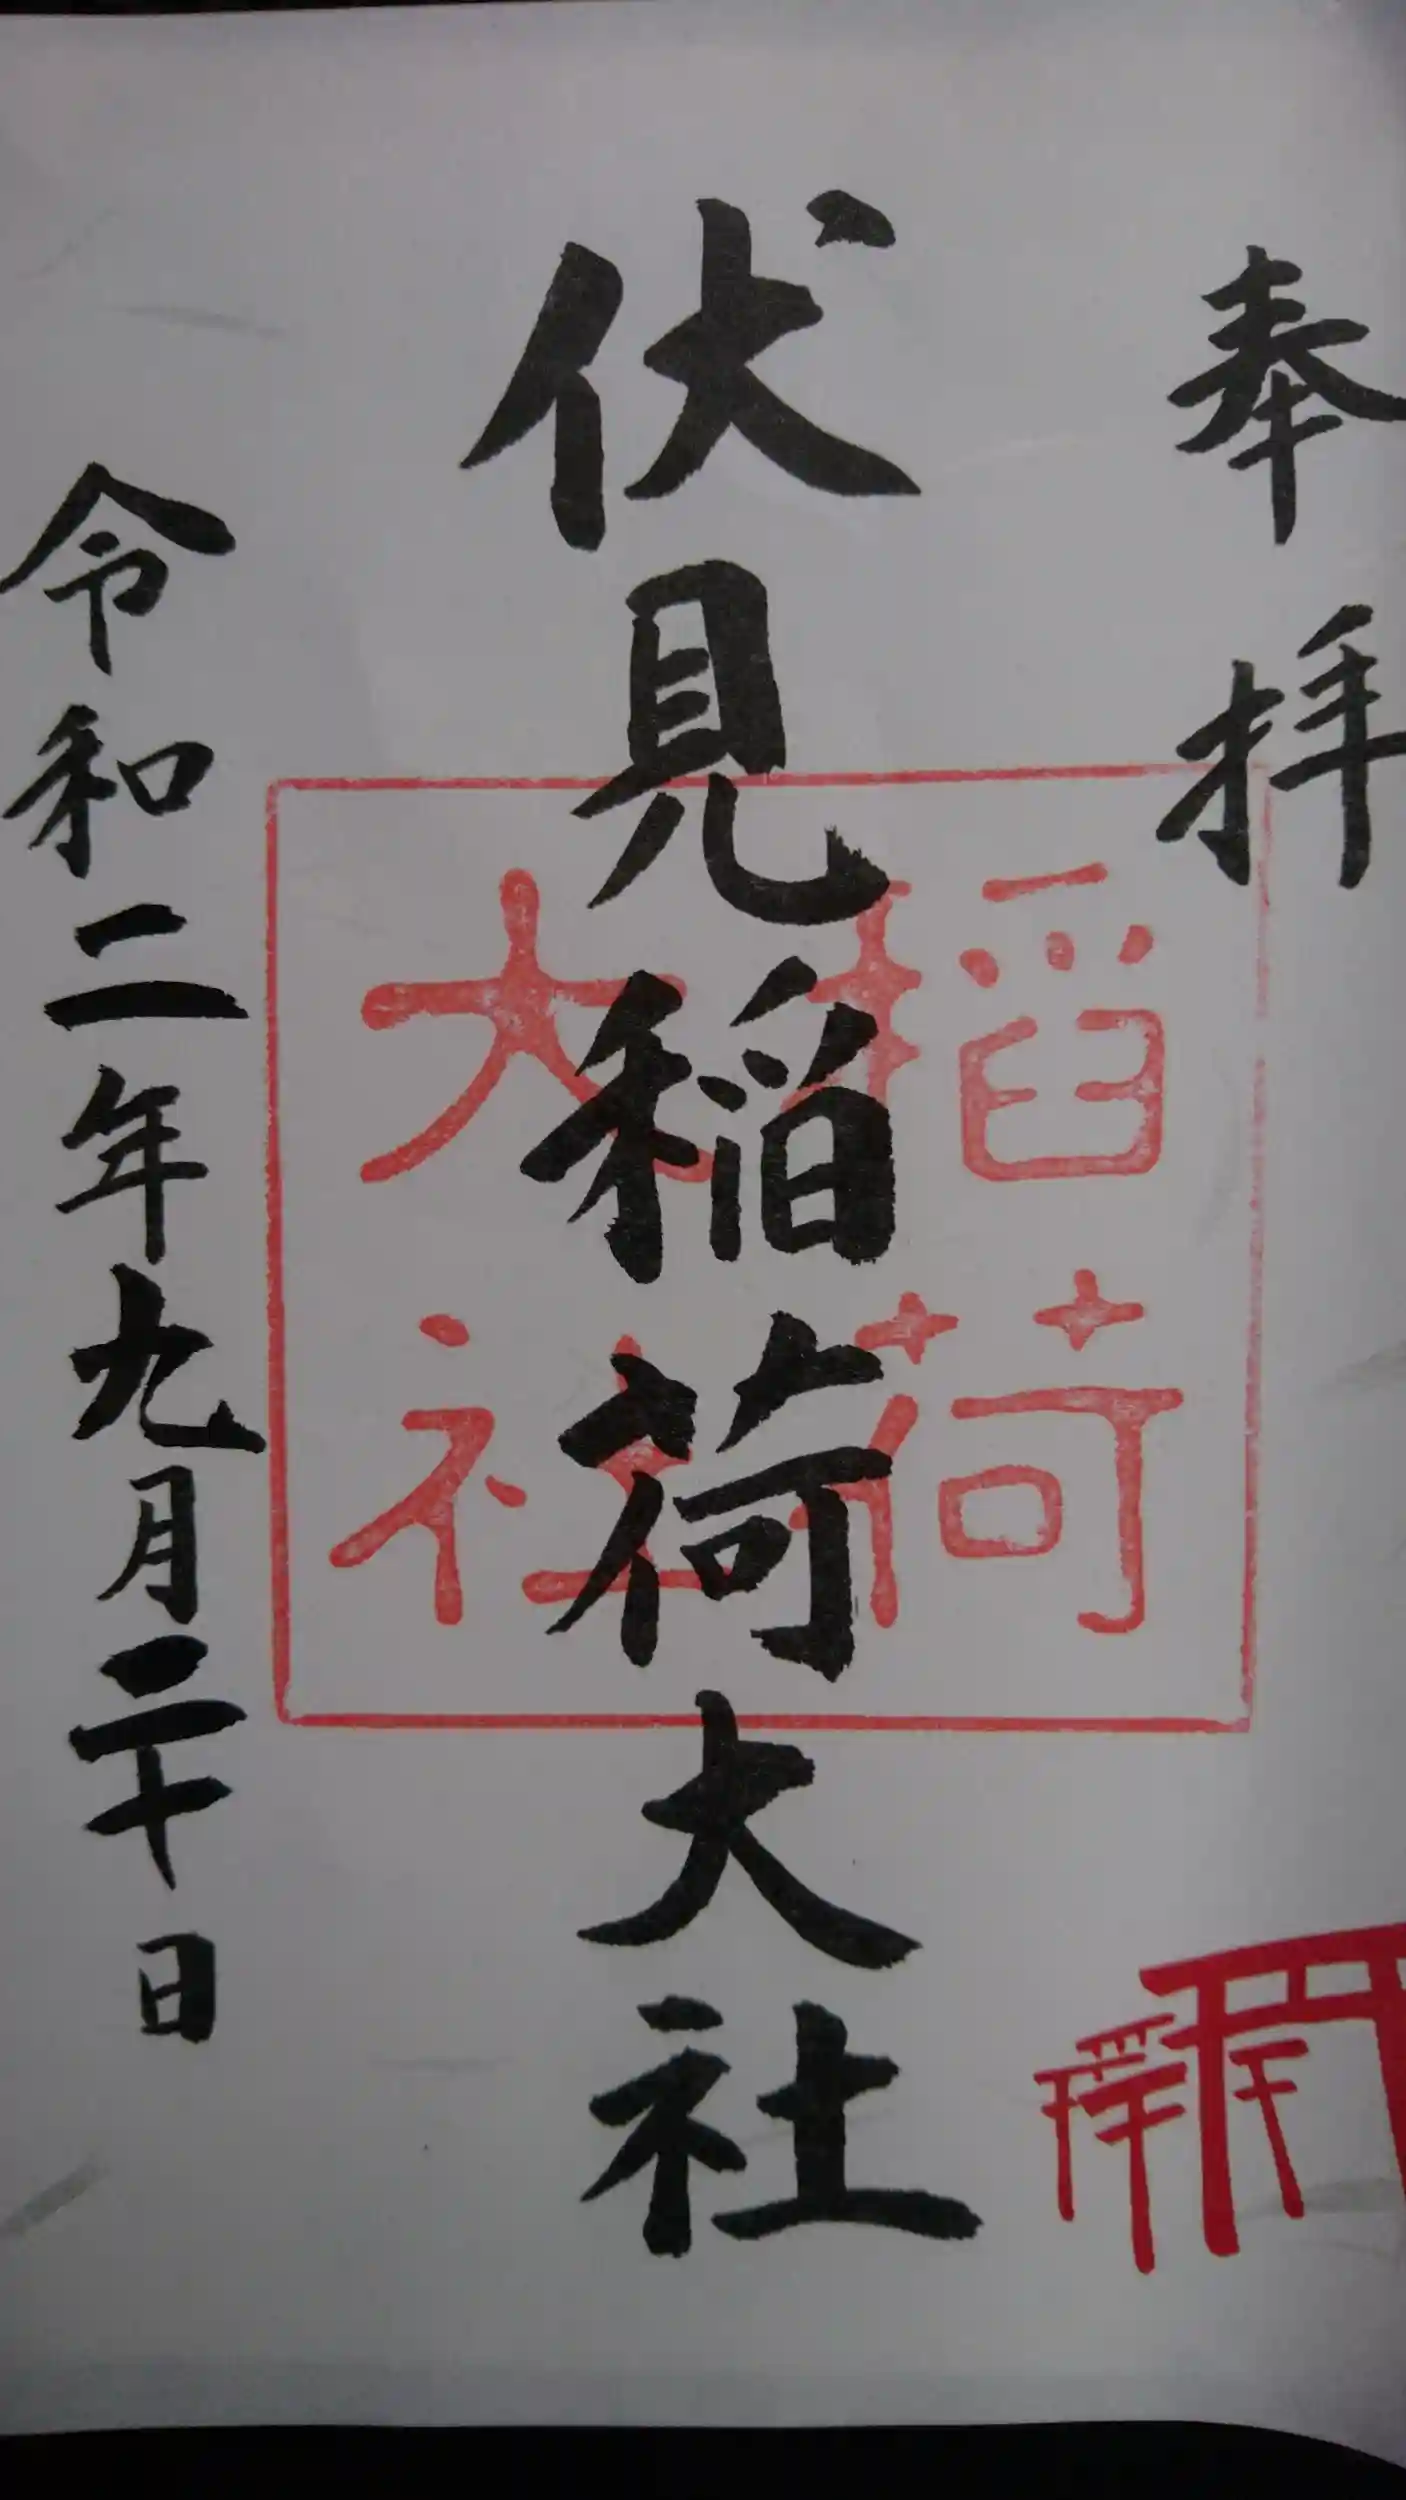 奉拝
伏見稲荷大社
稲荷
大社
令和二年九月二十日